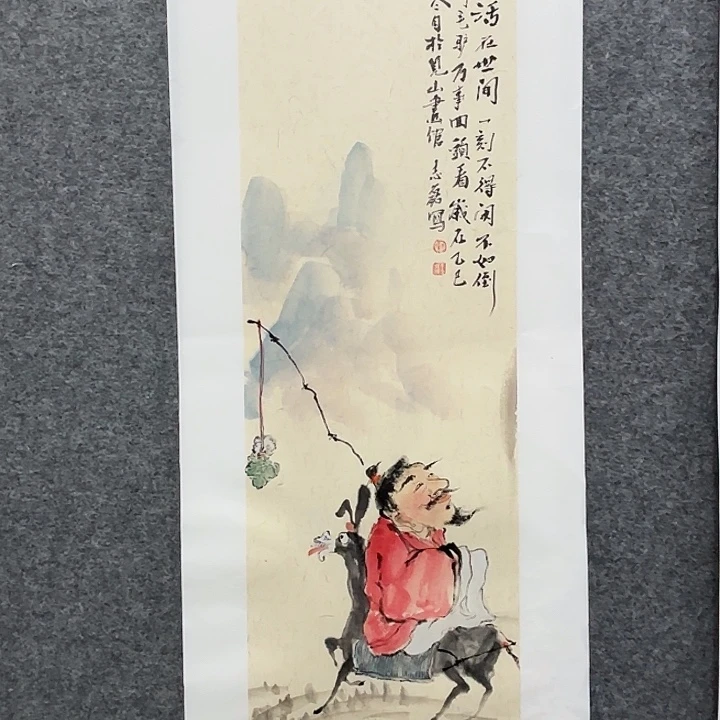 活在世间一刻不得闲不如倒
毛驴万事回頭看歲在乙巳
月於見山畫館志磊寫